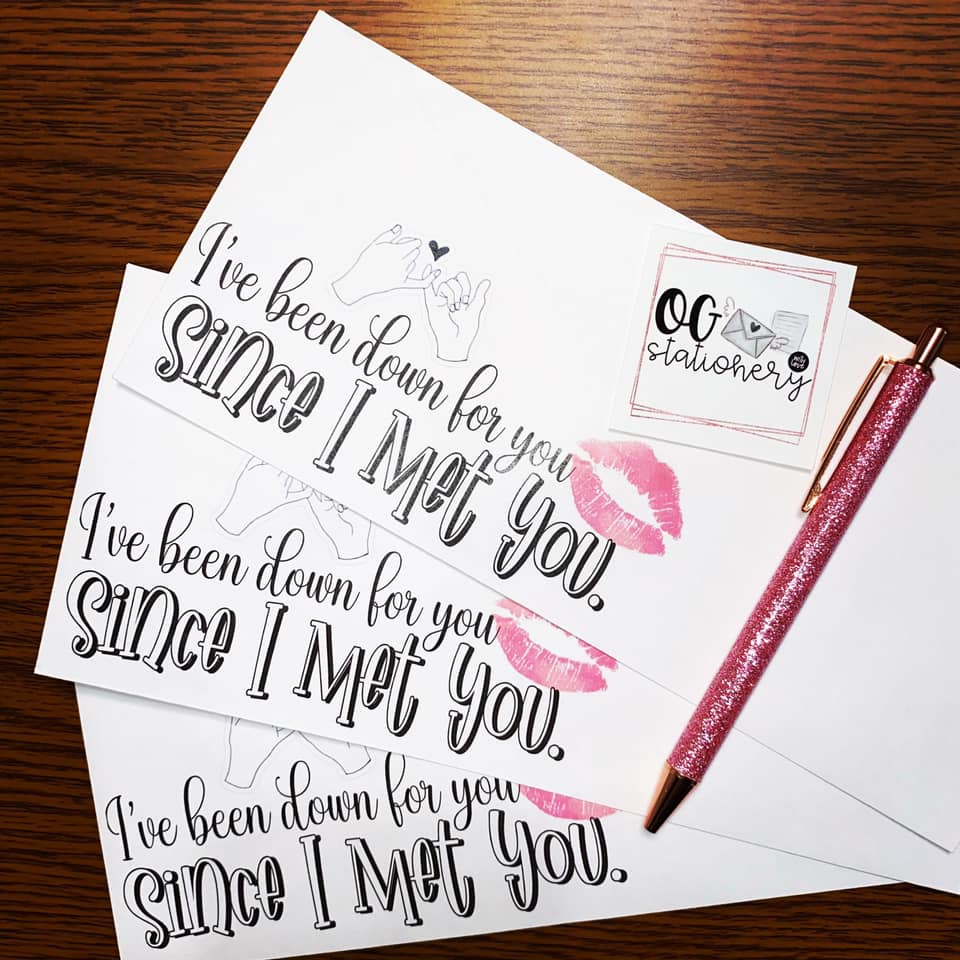 I've been down for you
since I Met you.
OG
stationery
I've been down for you
since I Met you.
I've been down for you
since I Met you.